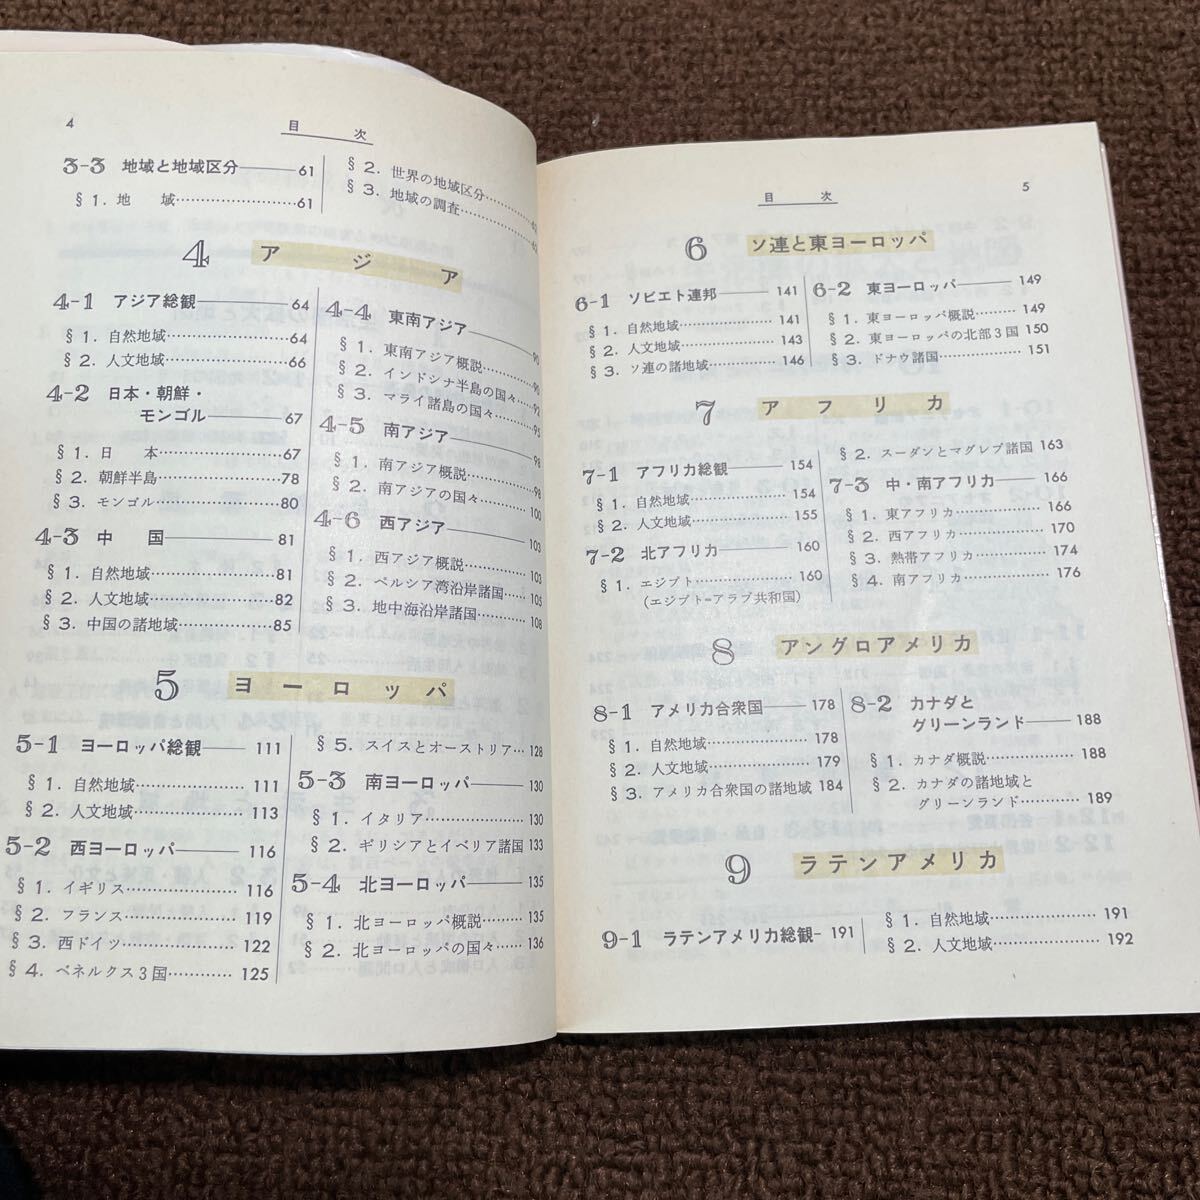 4
目 次
3-3 地域と地域区分 61
§1. 地 域 61
§2. 世界の地域区分
§3. 地域の調査
4 アジア
4-1 アジア総観 64
§1. 自然地域 64
§2. 人文地域 66
4-2 日本・朝鮮・
モンゴル 67
§1. 日 本 67
§2. 朝鮮半島 78
§3. モンゴル 80
4-3 中 国 81
§1. 自然地域 81
§2. 人文地域 82
§3. 中国の諸地域 85
4-4 東南アジア 90
§1. 東南アジア概説 90
§2. インドシナ半島の国々 92
§3. マライ諸島の国々 95
4-5 南アジア 98
§1. 南アジア概説 98
§2. 南アジアの国々 100
4-6 西アジア 103
§1. 西アジア概説 103
§2. ペルシア湾沿岸諸国 105
§3. 地中海沿岸諸国 108
5 ヨーロッパ
5-1 ヨーロッパ総観 111
§1. 自然地域 111
§2. 人文地域 113
5-2 西ヨーロッパ 116
§1. イギリス 116
§2. フランス 119
§3. 西ドイツ 122
§4. ベネルクス3国 125
§5. スイスとオーストリア 128
5-3 南ヨーロッパ 130
§1. イタリア 130
§2. ギリシアとイベリア諸国 133
5-4 北ヨーロッパ 135
§1. 北ヨーロッパ概説 135
§2. 北ヨーロッパの国々 136
目 次
5
6 ソ連と東ヨーロッパ
6-1 ソビエト連邦 141
§1. 自然地域 141
§2. 人文地域 143
§3. ソ連の諸地域 146
6-2 東ヨーロッパ 149
§1. 東ヨーロッパ概説 149
§2. 東ヨーロッパの北部3国 150
§3. ドナウ諸国 151
7 アフリカ
7-1 アフリカ総観 154
§1. 自然地域 154
§2. 人文地域 155
7-2 北アフリカ 160
§1. エジプト 160
(エジプト=アラブ共和国)
§2. スーダンとマグレブ諸国 163
7-3 中・南アフリカ 166
§1. 東アフリカ 166
§2. 西アフリカ 170
§3. 熱帯アフリカ 174
§4. 南アフリカ 176
8 アングロアメリカ
8-1 アメリカ合衆国 178
§1. 自然地域 178
§2. 人文地域 179
§3. アメリカ合衆国の諸地域 184
8-2 カナダと
グリーンランド 188
§1. カナダ概説 188
§2. カナダの諸地域と
グリーンランド 189
9 ラテンアメリカ
9-1 ラテンアメリカ総観 191
§1. 自然地域 191
§2. 人文地域 192